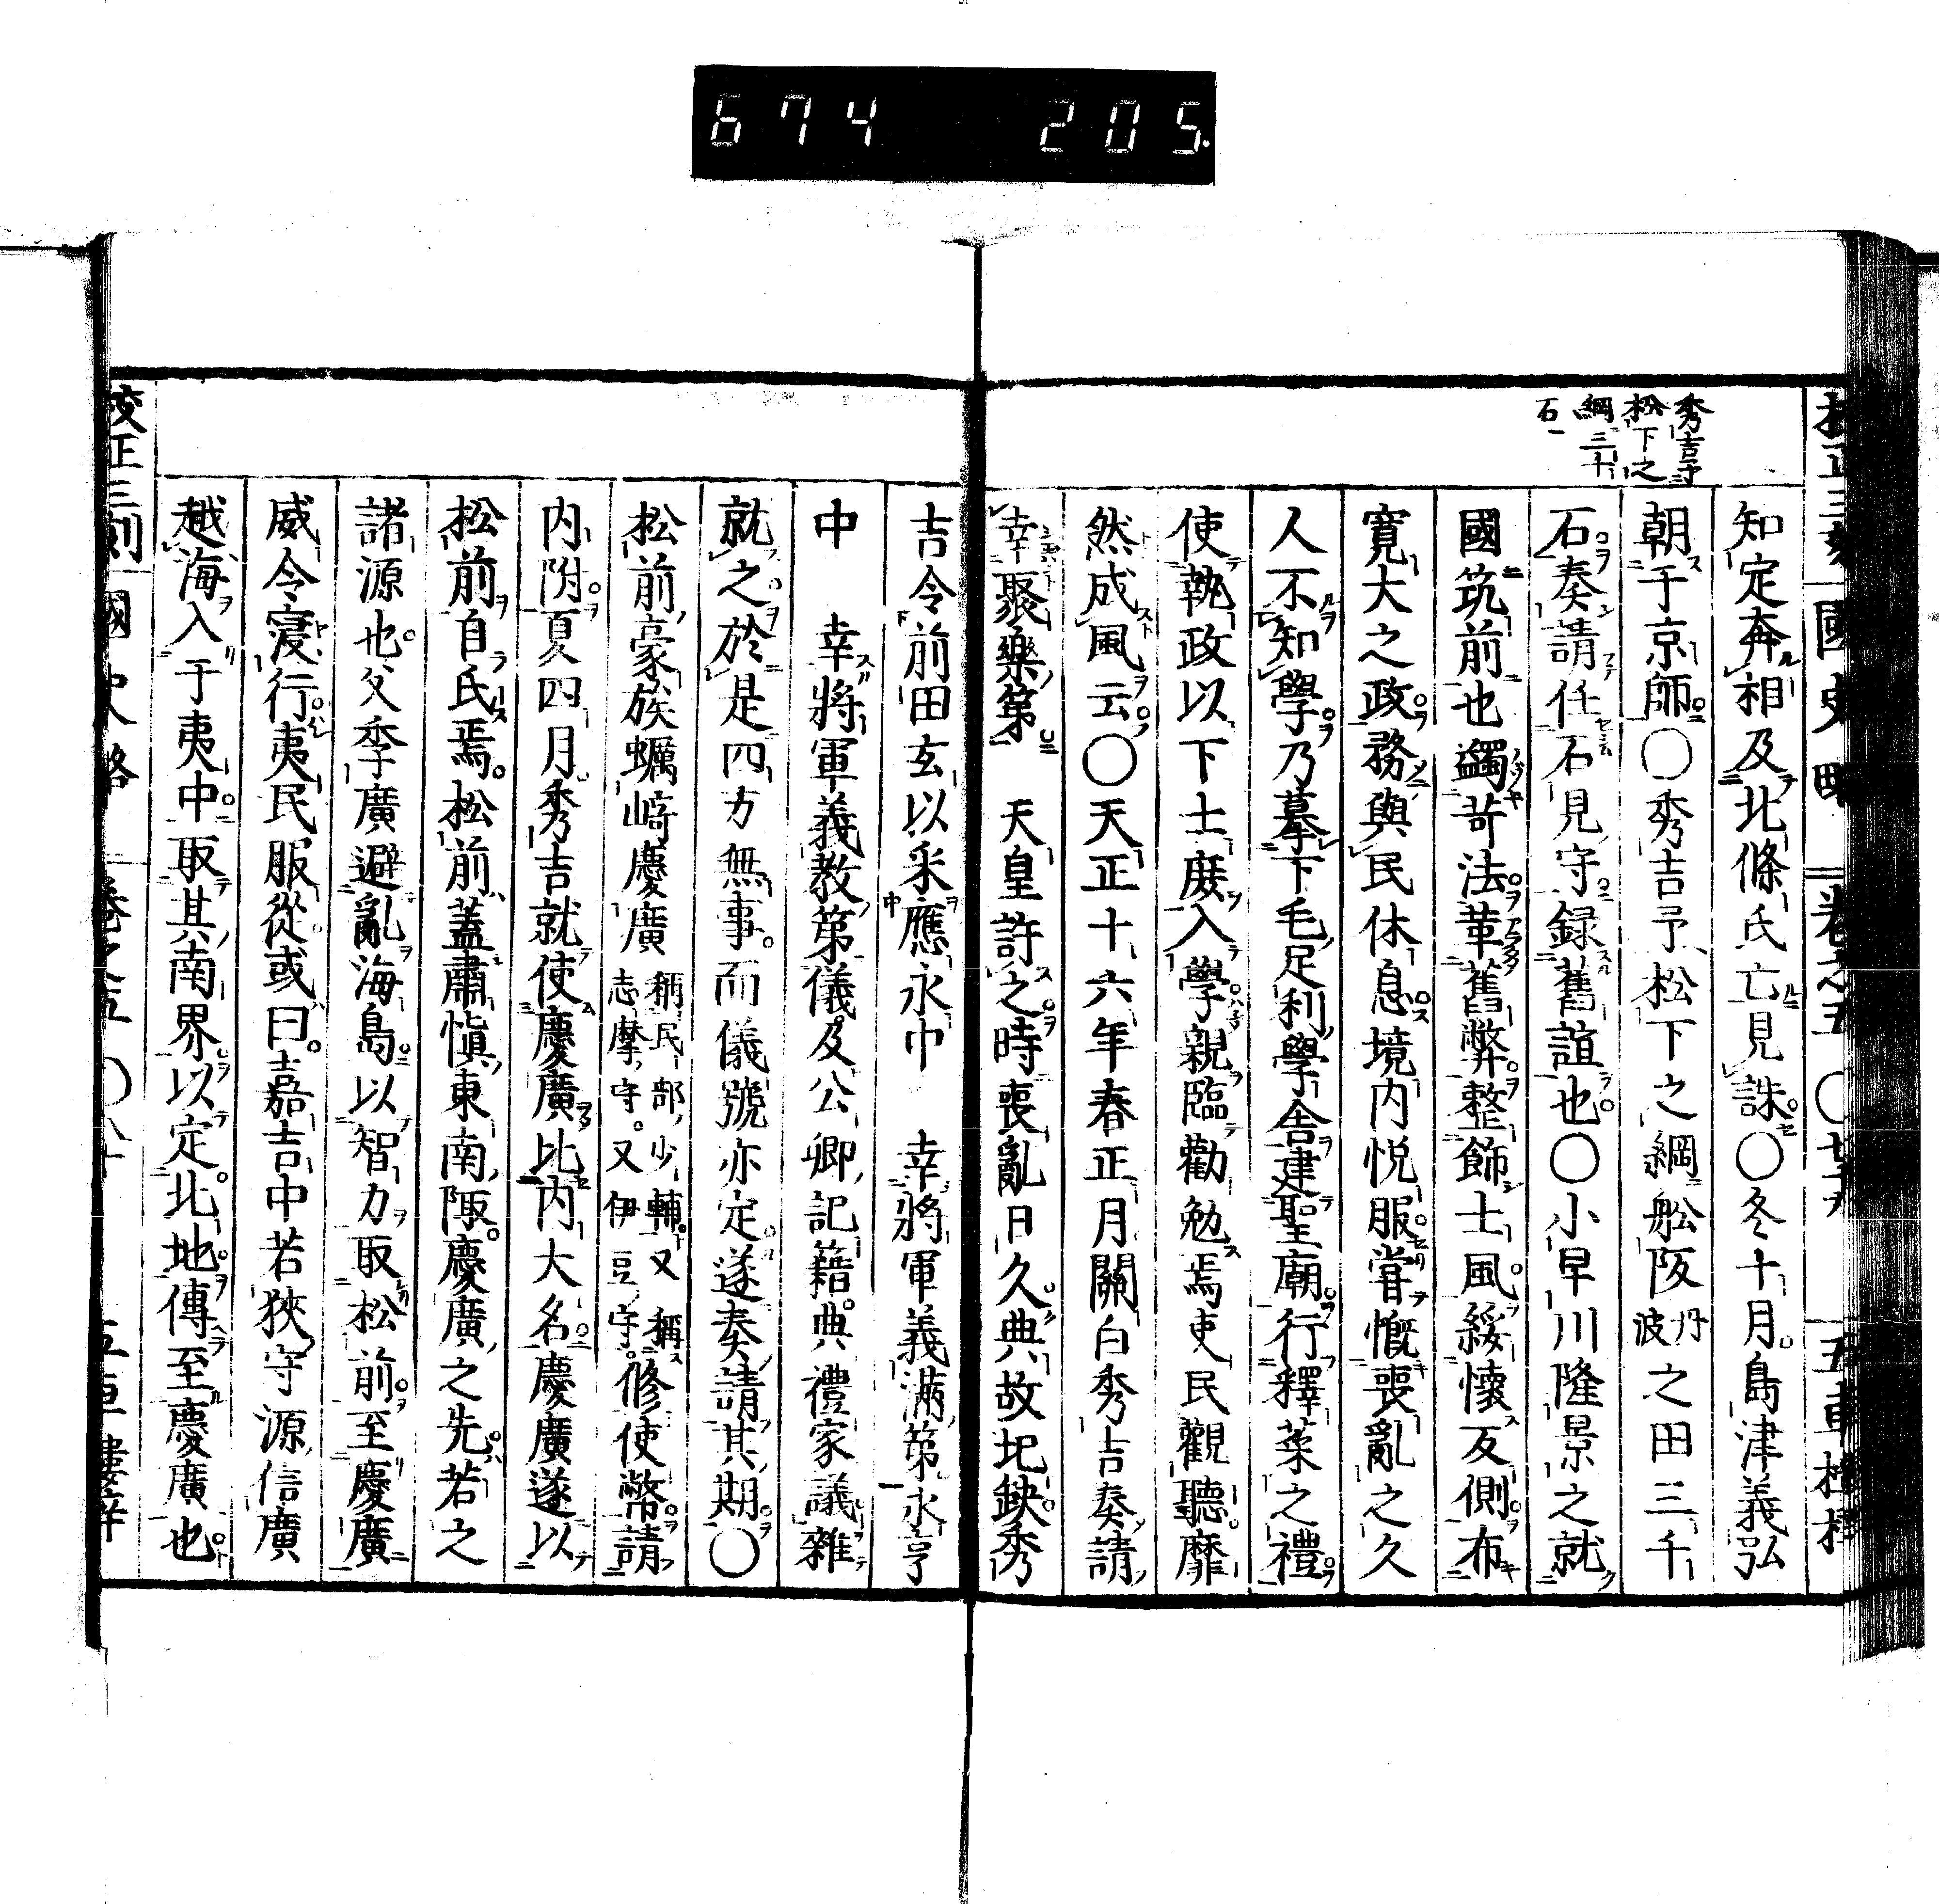 674 205.
秀吉予
松下之
綱三千
石
國史略
卷之五
知定奔相及北條氏亡見誅○冬十月島津義弘
朝于京師○秀吉予松下之綱舩阪丹波之田三千
石奏請任石見守録舊誼也○小早川隆景之就
國筑前也蠲苛法革舊弊整飾士風綏懷反側布
寛大之政務與民休息境内悦服嘗慨喪亂之久
人不知學乃摹下毛足利學舎建聖廟行釋菜之禮
使執政以下士庶入學親臨勸勉焉吏民觀聽靡
然成風云○天正十六年春正月關白秀吉奏請
幸聚樂第 天皇許之時喪亂日久典故圯缺秀
吉令前田玄以采應永中 幸將軍義滿第永亨
中 幸將軍義教第儀及公卿記籍典禮家議雜
就之於是四方無事而儀號亦定遂奏請其期○
松前豪族蠣﨑慶廣稱民部少輔又稱志摩守又伊豆守修使幣請
内附夏四月秀吉就使慶廣比内大名慶廣遂以
松前自氏焉松前蓋肅愼東南陬慶廣之先若之
諸源也父季廣避亂海島以智力取松前至慶廣
威令寖行夷民服從或曰嘉吉中若狹守源信廣
越海入于夷中取其南界以定北地傳至慶廣也
校正三刻 國史略